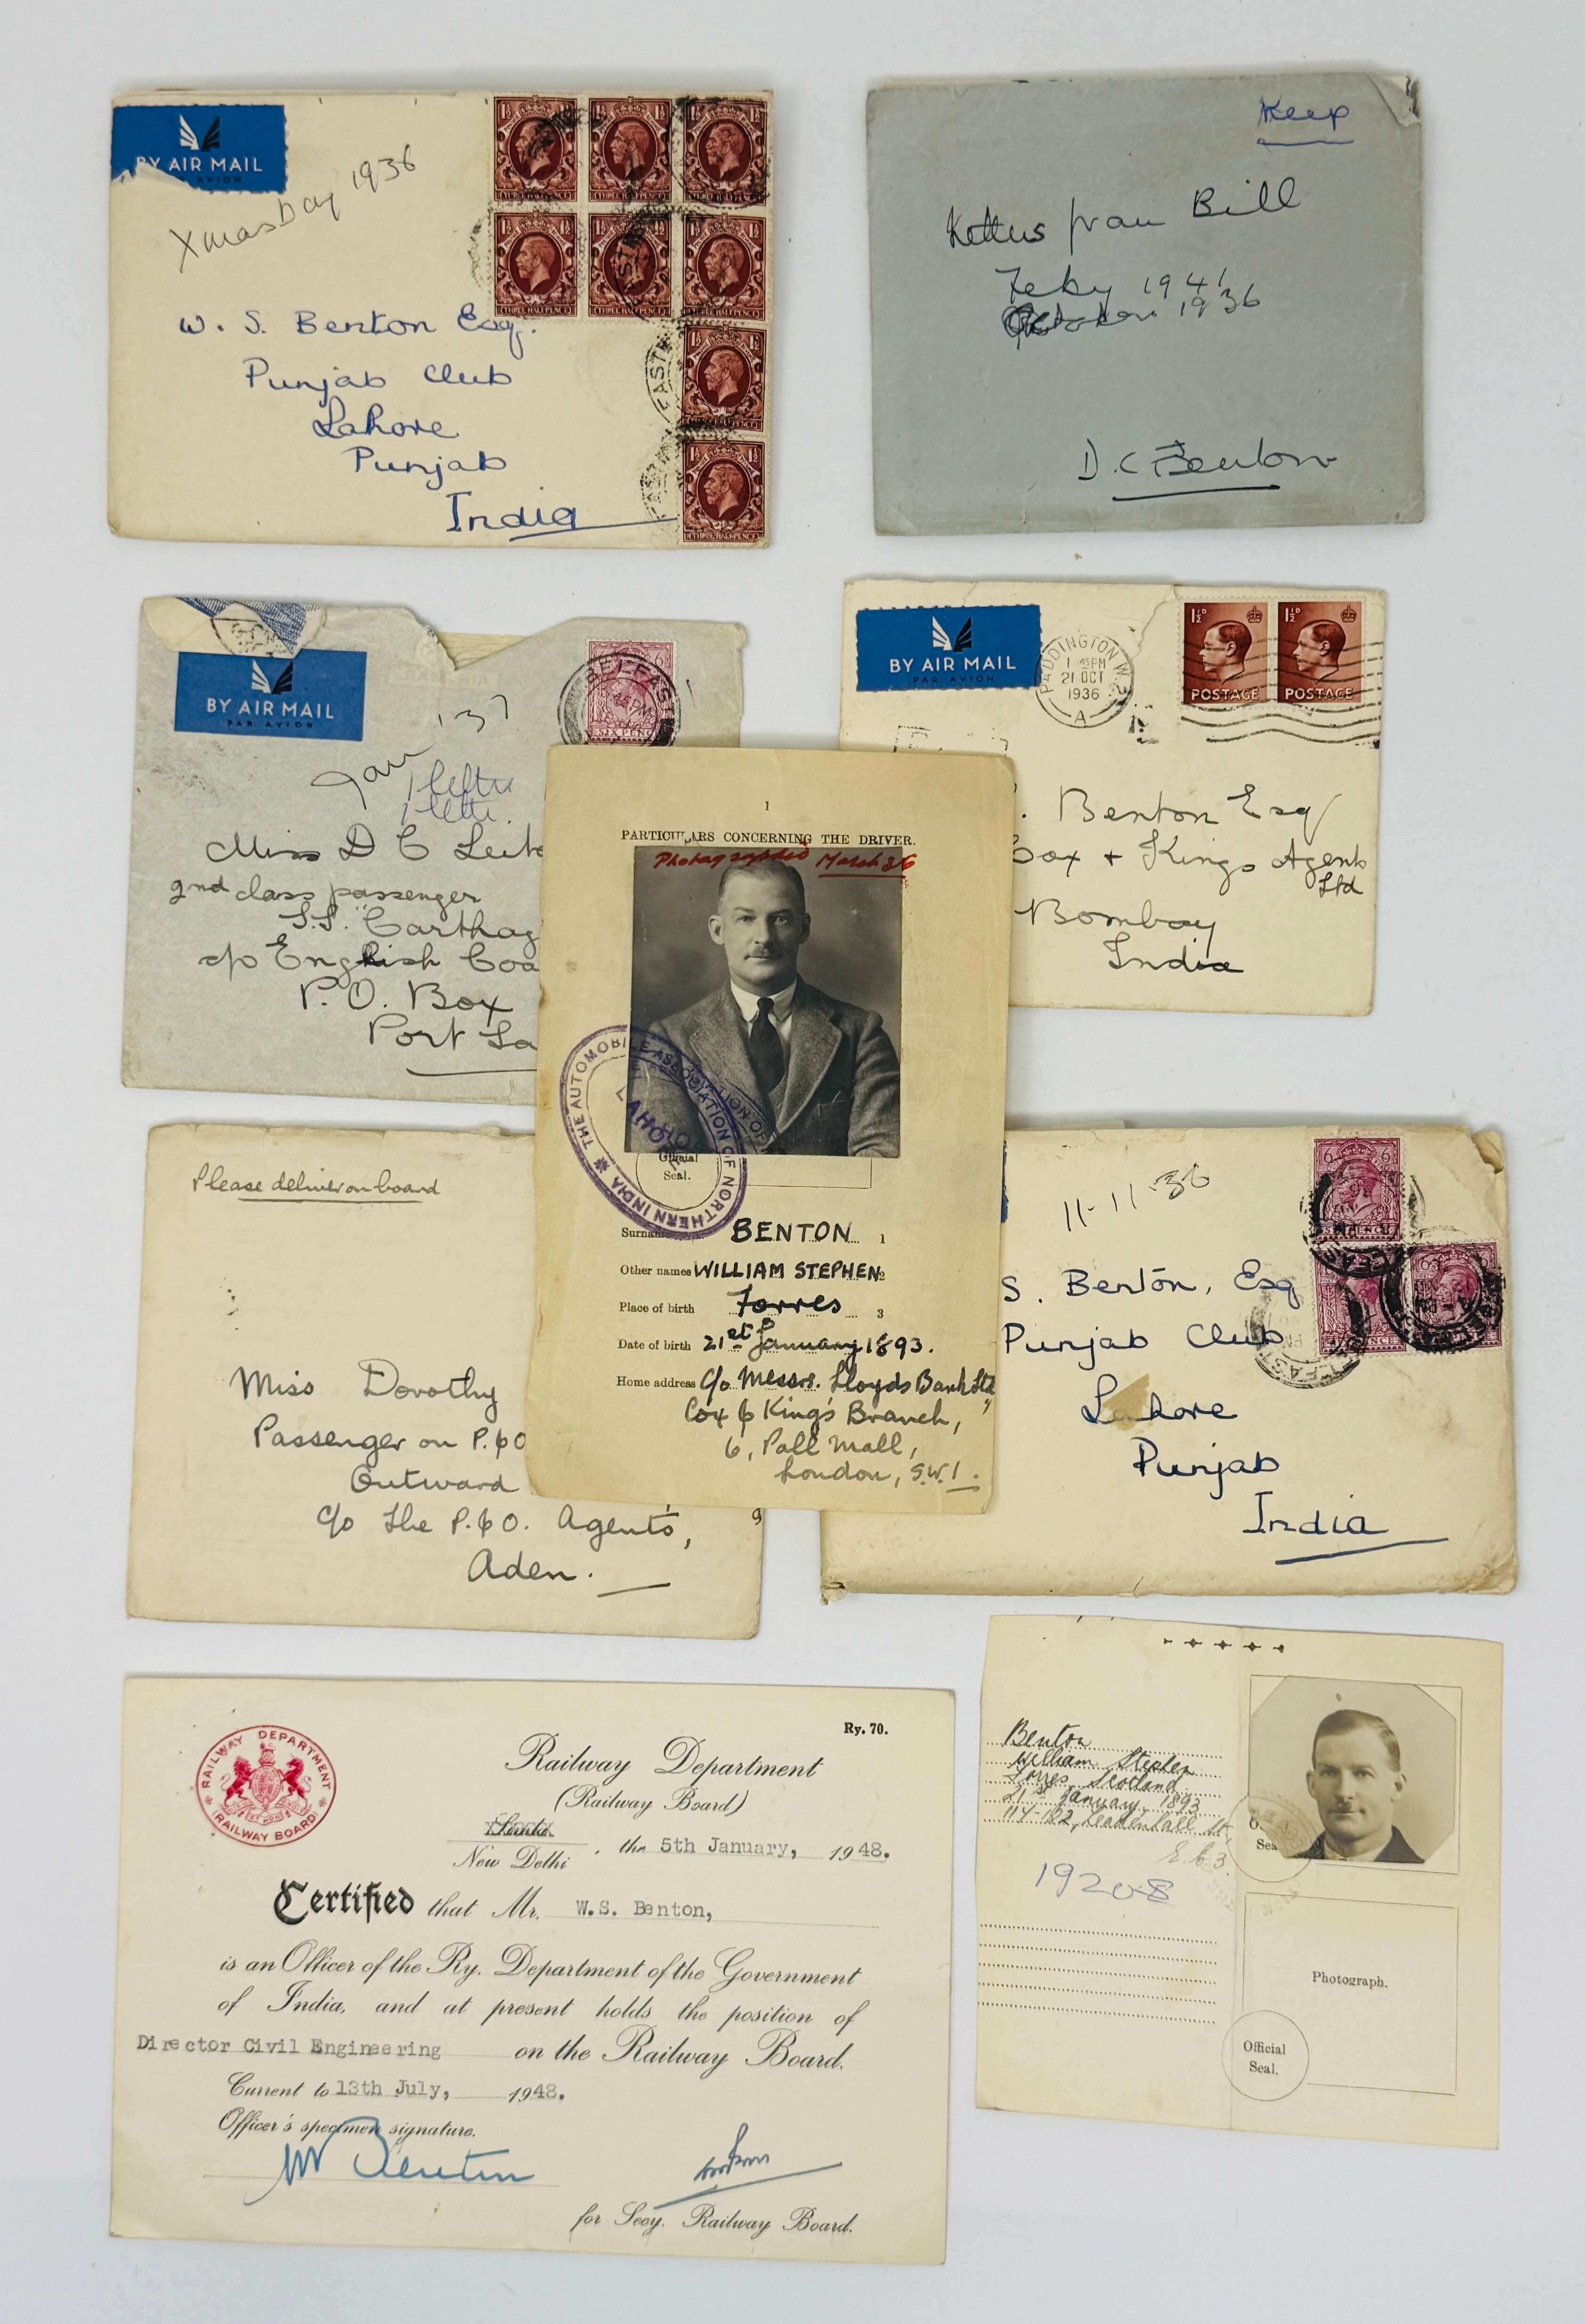 BY AIR MAIL
PAR AVION
Xmas Day 1936
W. S. Benton Esq.
Punjab Club
Lahore
Punjab
India
Keep
from Bill
Feby 1941
October 1936
D. C Benton
BY AIR MAIL
PAR AVION
BELFAST
Jan '37
1 letter
1 lette.
Miss D C
2nd class passenger
S.S. "Carthag
c/o English Coa
P. O. Box
Port Sa
BY AIR MAIL
PAR AVION
PADDINGTON W.2
1 45 PM
21 OCT
1936
A
1½D 1½D
POSTAGE POSTAGE
. Benton Esq
Cox + Kings Agents
Ltd
Bombay
India
1
PARTICULARS CONCERNING THE DRIVER.
Photographed March 36
THE AUTOMOBILE ASSOCIATION OF NORTHERN INDIA
LAHORE
Official
Seal.
Surname BENTON 1
Other names WILLIAM STEPHEN 2
Place of birth Forres 3
Date of birth 21st January 1893.
Home address c/o Messrs. Lloyds Bank Ltd
Cox & King's Branch,
6, Pall Mall,
London, S.W.1.
Please deliver on board
Miss Dorothy
Passenger on P.&O
Outward
c/o the P.&O. Agents,
Aden.
11-11-36
S. Benton, Esq
Punjab Club
Lahore
Punjab
India
RAILWAY DEPARTMENT
(RAILWAY BOARD)
Ry. 70.
Railway Department
(Railway Board)
Simla
New Delhi, the 5th January, 1948.
Certified that Mr. W.S. Benton,
is an Officer of the Ry. Department of the Government
of India, and at present holds the position of
Director Civil Engineering on the Railway Board.
Current to 13th July, 1948.
Officer's specimen signature.
W Benton
for Secy. Railway Board.
Benton
William Stephen
Forres, Scotland
21st January, 1893
114-122, Leadenhall St
E.C.3.
19208
Photograph.
Official
Seal.